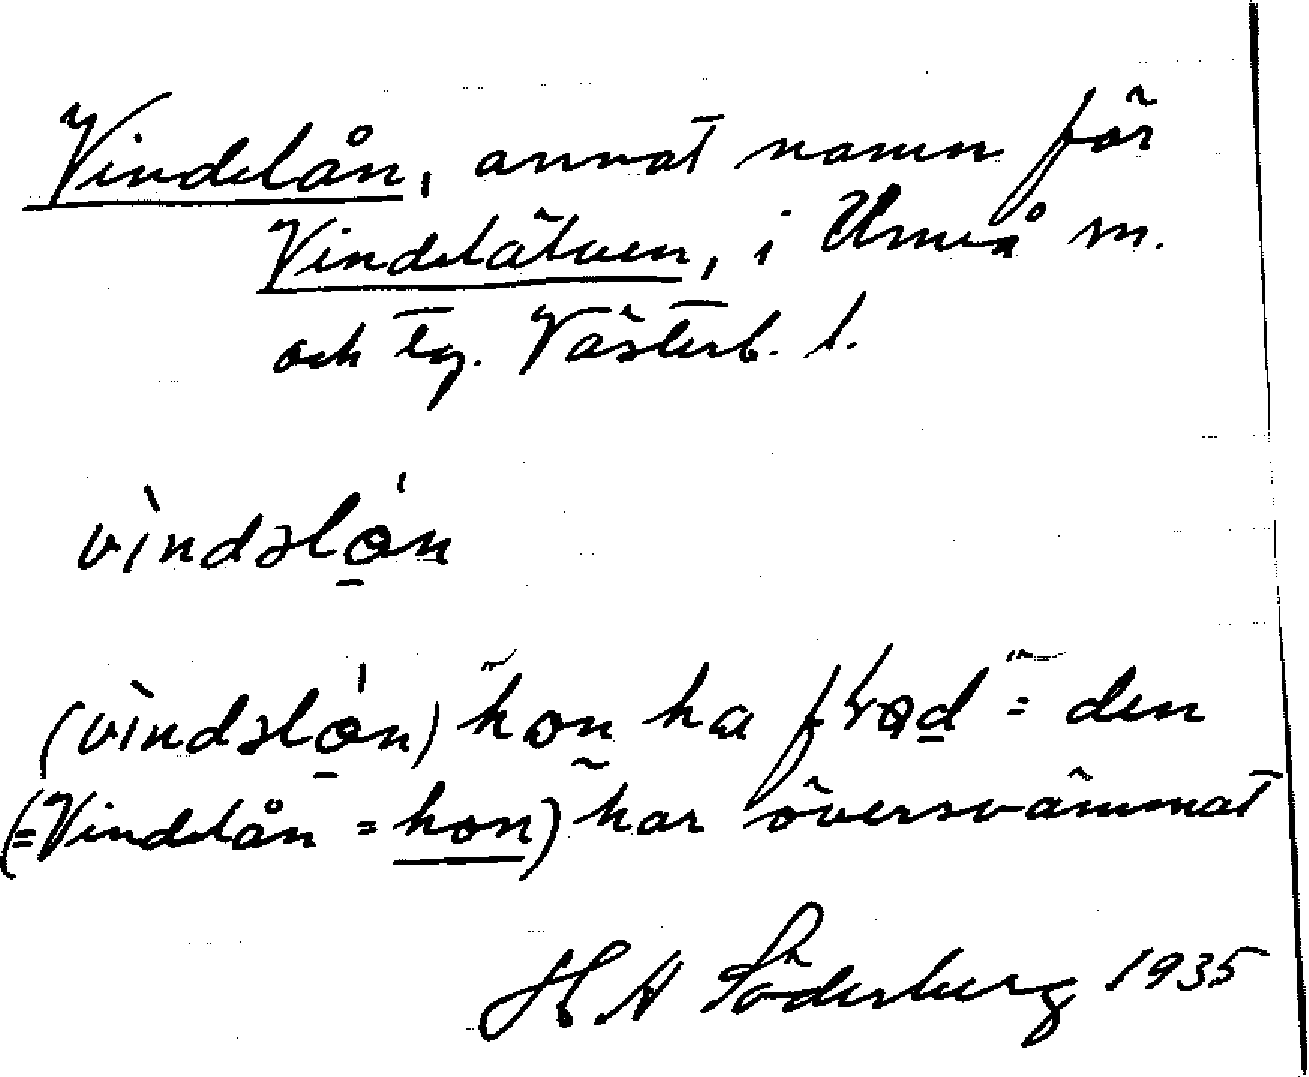 Vindelån, annat namn för
Vindelälven, i Umeå m.
och tg. Västerb. l.
vìndəlǫ́n
(vìndəlǫ́n) hon ha flod = den
(=Vindelån = hon) har översvämmat
H A Söderberg 1935